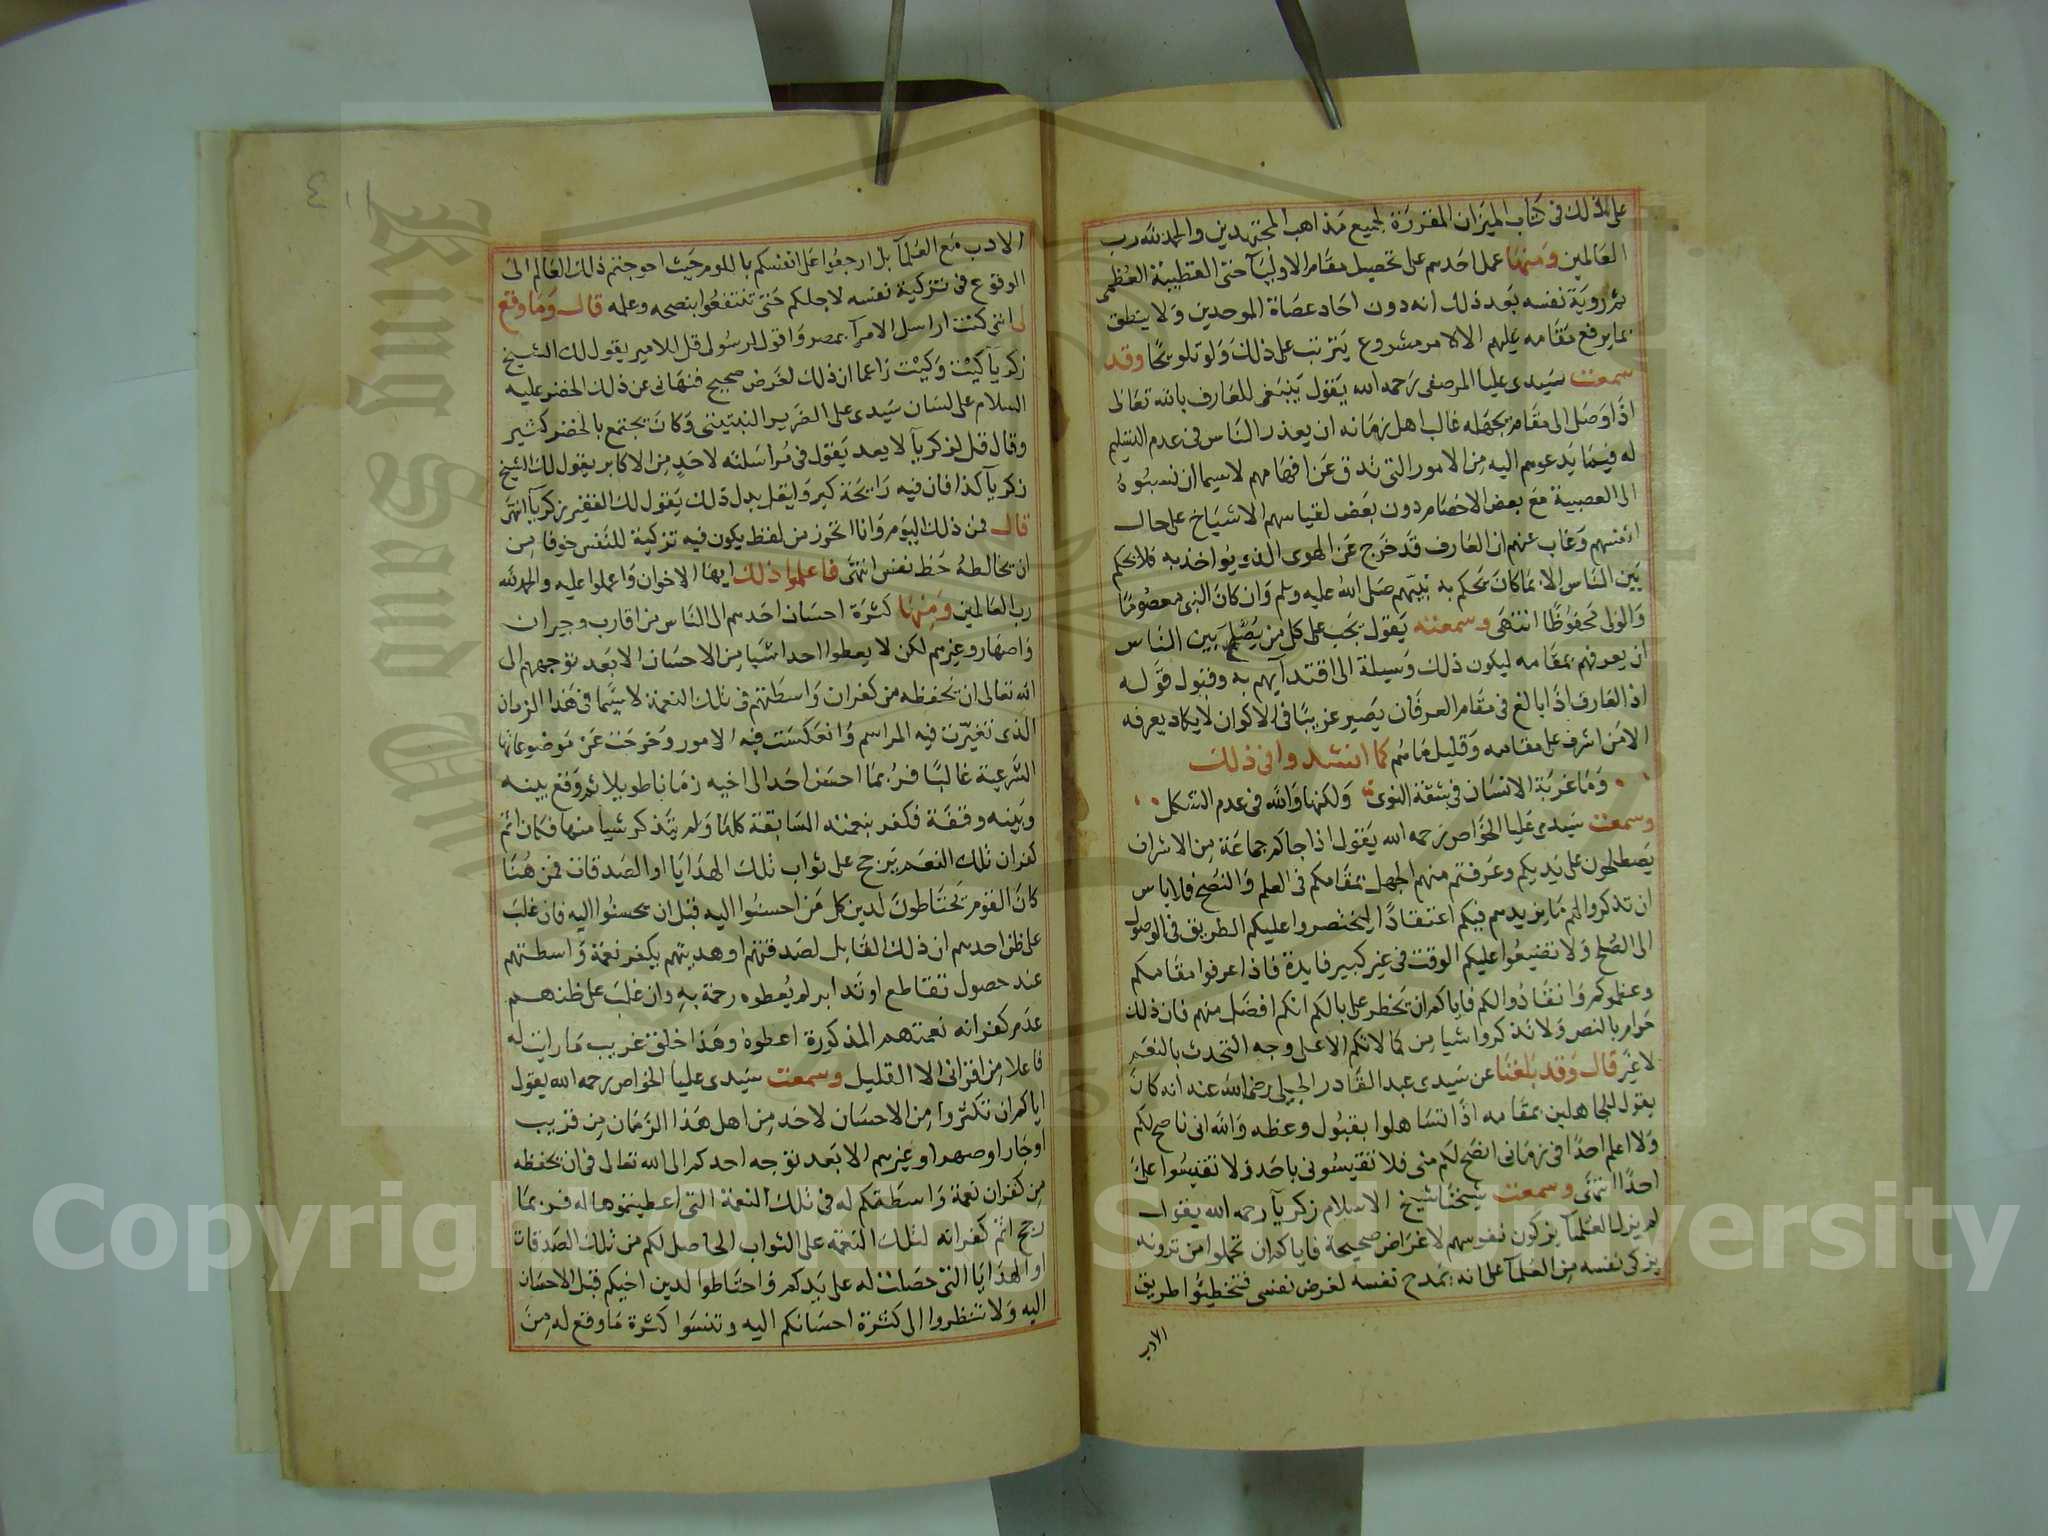 على ذلك في كتاب الميزان المقررة لجميع مذاهب المجتهدين والحمد لله رب
العالمين ومنها عمل احدهم على تحصيل مقام الاوليآ حتى القطبية العظمى
ثم روية نفسه بعد ذلك انه دون احاد عصاة الموحدين ولا ينطق
بما يرفع مقامه عليهم الا لامر مشروع يترتب على ذلك ولو تلويحا وقد
سمعت سيدى عليا المرصفى رحمه الله يقول ينبغى للعارف بالله تعالى
اذا وصل الى مقام يجهله غالب اهل زمانه ان يعذر الناس فى عدم التسليم
له فيما يدعوهم اليه من الامور التى تدق عن افهامهم لا سيما ان نسبوه
الى العصبية مع بعض الاخصام دون بعض لقياسهم الاشياخ على حال
انفسهم وغاب عنهم ان العارف قد خرج عن الهوى الذى يواخذ به فلا يحكم
بين الناس الا بما كان يحكم به نبيهم صلى الله عليه وسلم وان كان النبى معصوما
والولى محفوظا انتهى وسمعته يقول يجب على كل من يصلح بين الناس
ان يعرفهم بمقامه ليكون ذلك وسيلة الى اقتدآيهم به وقبول قوله
اذ العارف اذا بالغ فى مقام العرفان يصير غريبا فى الاكوان لا يكاد يعرفه
الا من اشرف على مقامه وقليل ما هم كما انشدوا فى ذلك
وما غربة الانسان فى شقة النوى ولكنها والله فى عدم الشكل
وسمعت سيدى عليا الخواص رحمه الله يقول اذا جاكم جماعة من الاشراف
يصطلحون على يديكم وعرفتم منهم الجهل بمقامكم فى العلم والنصح فلا باس
ان تذكروا لهم ما يزيدهم فيكم اعتقادا ليختصروا عليكم الطريق فى الوصول
الى الصلح ولا تضيعوا عليكم الوقت فى غير كبير فايدة فاذا عرفوا مقامكم
وعظموكم وانقادوا لكم فاياكم ان يخطر على بالكم انكم افضل منهم فان ذلك
حرام بالنص ولا تذكروا شيا من كمالاتكم الا على وجه التحدث بالنعم
لا غير قال وقد بلغنا عن سيدى عبد القادر الجيلى رضى الله عنه انه كان
يقول للجاهلين بمقامه اذا تساهلوا بقبول وعظه والله انى ناصح لكم
ولا اعلم احدا فى زمانى انصح لكم منى فلا تقيسونى باحد ولا تقيسوا علىّ
احدا انتهى وسمعت شيخنا شيخ الاسلام زكريآ رحمه الله يقول
لم يزل العلمآ يزكون نفوسهم لاغراض صحيحة فاياكم ان تحملوا من ترونه
يزكى نفسه من العلمآ على انه يمدح نفسه لغرض نفسى فتخطيوا طريق
الادب
الادب مع العلمآ بل ارجعوا على انفسكم باللوم حيث احوجتم ذلك العالم الى
الوقوع فى تزكية نفسه لاجلكم حتى تنتفعوا بنصحه وعلمه قال ومما وقع
لى اننى كنت اراسل الامرآ بمصر واقول لرسولى قل للامير يقول لك الشيخ
زكريآ كيت وكيت زاعما ان ذلك لغرض صحيح فنهانى عن ذلك الخضر عليه
السلام على لسان سيدى على الضرير النبتيتى وكان يجتمع بالخضر كثير
وقال قل لزكريآ لا يعد يقول فى مراسلته لاحد من الاكابر يقول لك الشيخ
زكريآ كذا فان فيه رايحة كبر وليقل بدل ذلك يقول لك الفقير زكريآ انتهى
قال فمن ذلك اليوم وانا اتحوز من لفظ يكون فيه تزكية للنفس خوفا من
ان يخالطه حظ نفس انتهى فاعلموا ذلك ايها الاخوان واعملوا عليه والحمد لله
رب العالمين ومنها كثرة احسان احدهم الى الناس من اقارب وجيران
واصهار وغيرهم لكن لا يعطوا احدا شيا من الاحسان الا بعد توجههم الى
الله تعالى ان يحفظه من كفران واسطتهم فى تلك النعمة لا سيما فى هذا الزمان
الذى تغيرت فيه المراسم وانعكست فيه الامور وخرجت عن موضوعاتها
الشرعية غالبا فربما احسن احد الى اخيه زمانا طويلا ثم وقع بينه
وبينه وقفة فكفر بنعمته السابقة كلها ولم يتذكر شيا منها فكان اثم
كفران تلك النعم يرجح على ثواب تلك الهدايا او الصدقات فمن هنا
كان القوم يحتاطون لدين كل من احسنوا اليه قبل ان يحسنوا اليه فان غلب
على ظن احدهم ان ذلك القابل لصدقتهم او هديتهم يكفر نعمة واسطتهم
عند حصول تقاطع او تدابر لم يعطوه رحمة به وان غلب على ظنهم
عدم كفرانه نعمتهم المذكورة اعطوه وهذا خلق غريب ما رايت له
فاعلا من اقرانى الا القليل وسمعت سيدى عليا الخواص رحمه الله يقول
اياكم ان تكثروا من الاحسان لاحد من اهل هذا الزمان من قريب
او جار او صهر او غيرهم الا بعد توجه احدكم الى الله تعالى فى ان يحفظه
من كفران نعمة واسطتكم له فى تلك النعمة التى اعطيتموها له فربما
رجح اثم كفرانه لتلك النعمة على الثواب الحاصل لكم من تلك الصدقات
او الهدايا التى حصلت له على يدكم واحتاطوا لدين اخيكم قبل الاحسان
اليه ولا تنظروا الى كثرة احسانكم اليه وتنسوا كثرة ما وقع له من
King Saud University
Copyright © King Saud University